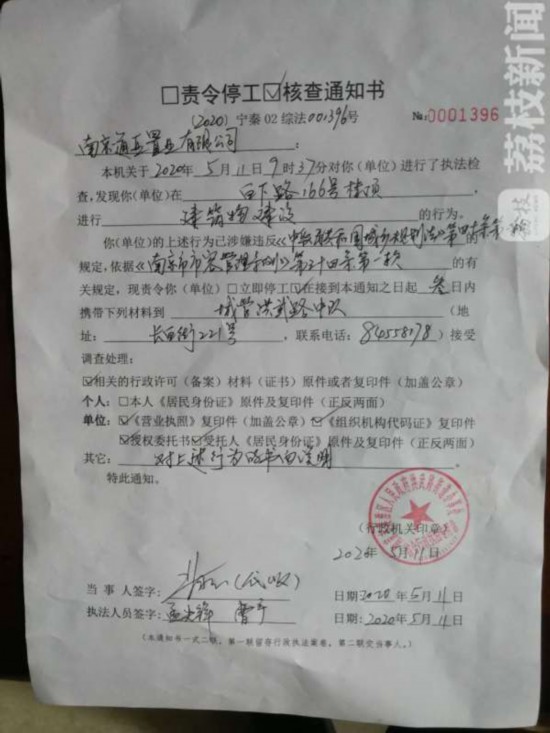 荔枝新闻
荔枝
□责令停工☑核查通知书
(2020)宁秦02综法001396号
№:0001396
南京通 置业有限公司:
本机关于2020年5月11日9时37分对你(单位)进行了执法检
查,发现你(单位)在白下路166号楼顶,
进行建筑物建设的行为。
你(单位)的上述行为已涉嫌违反《中华人民共和国城乡规划法》第四十条第一款的
规定,依据《南京市市容管理条例》第三十四条第一款的有
关规定,现责令你(单位)□立即停工☑在接到本通知之日起叁日内
携带下列材料到城管洪武路中队(地
址:长白街221号,联系电话:84558178)接受
调查处理:
☑相关的行政许可(备案)材料(证书)原件或者复印件(加盖公章)
个人:□本人《居民身份证》原件及复印件(正反两面)
单位:☑《营业执照》复印件(加盖公章)☑《组织机构代码证》复印件
☑授权委托书☑受托人《居民身份证》原件及复印件(正反两面)
其它:对上述行为的 说明。
特此通知。
(行政机关印章)
2020年5月11日
当事人签字: 日期:2020年5月11日
执法人员签字:孟 日期:2020年5月11日
(本通知书一式二联,第一联留存行政执法案卷,第二联交当事人。)